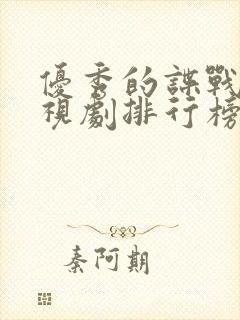 優秀的諜戰
視劇排行榜
秦阿期